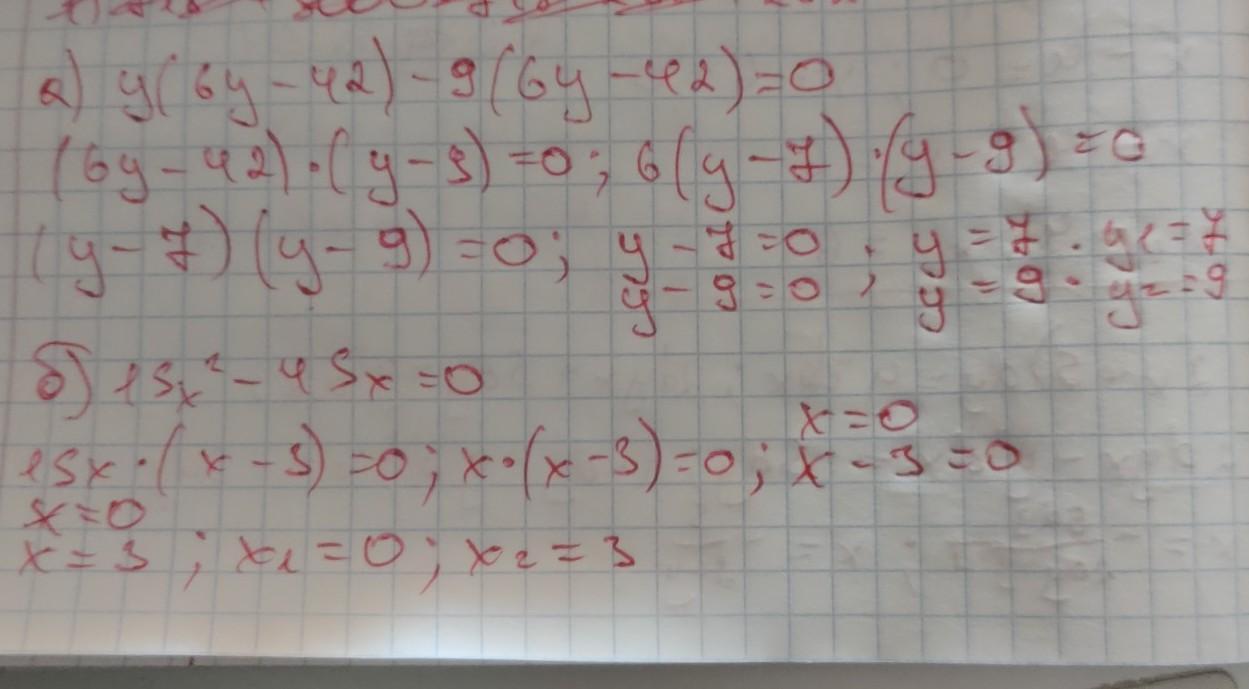 а) y(6y-42)-9(6y-42)=0
(6y-42)·(y-9)=0; 6(y-7)·(y-9)=0
(y-7)(y-9)=0; y-7=0 ; y=7 . y₁=7
y-9=0 y=9 . y₂=9
б) 15x²-45x=0
x=0
15x·(x-3)=0; x·(x-3)=0; x-3=0
x=0
x=3 ; x₁=0; x₂=3